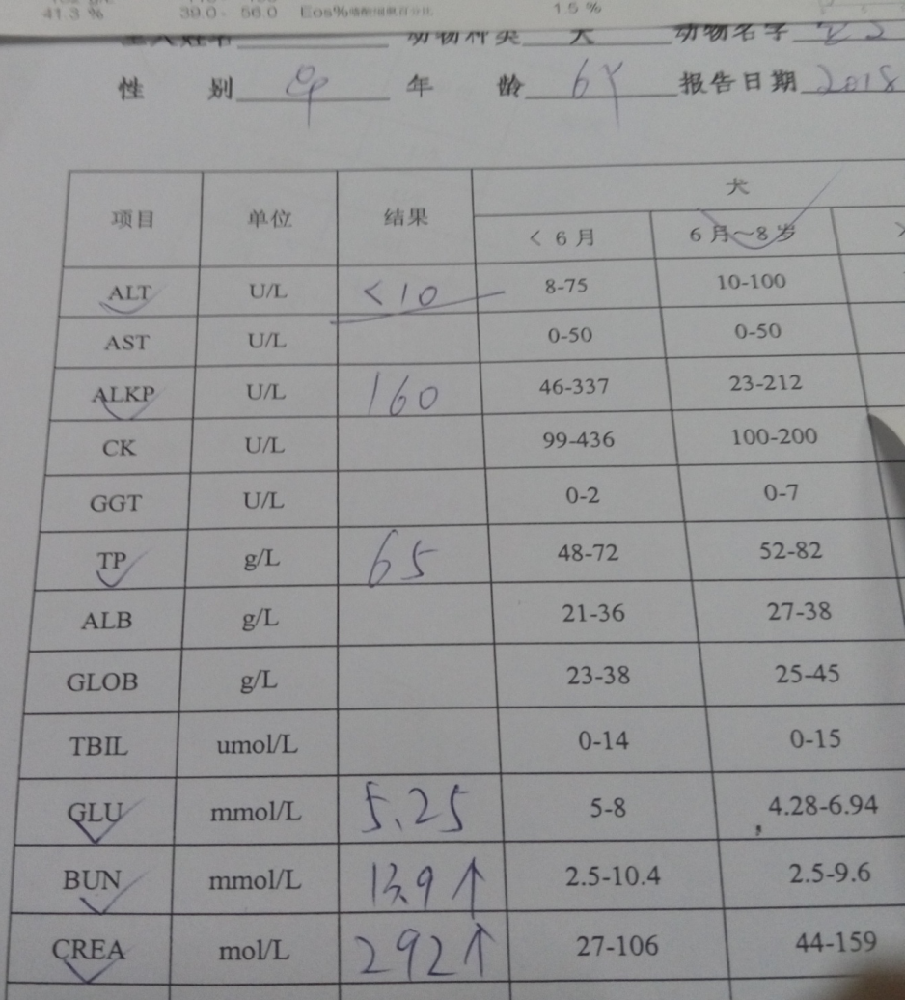 41.3 % 39.0 - 56.0 Eos%嗜酸细胞百分比 1.5 %
主人姓名 动物种类 犬 动物名字
性 别 年 龄 6Y 报告日期 2018
项目 单位 结果 犬
< 6 月 6 月~8 岁
ALT U/L <10 8-75 10-100
AST U/L 0-50 0-50
ALKP U/L 160 46-337 23-212
CK U/L 99-436 100-200
GGT U/L 0-2 0-7
TP g/L 65 48-72 52-82
ALB g/L 21-36 27-38
GLOB g/L 23-38 25-45
TBIL umol/L 0-14 0-15
GLU mmol/L 5.25 5-8 4.28-6.94
BUN mmol/L 13.9↑ 2.5-10.4 2.5-9.6
CREA mol/L 292↑ 27-106 44-159